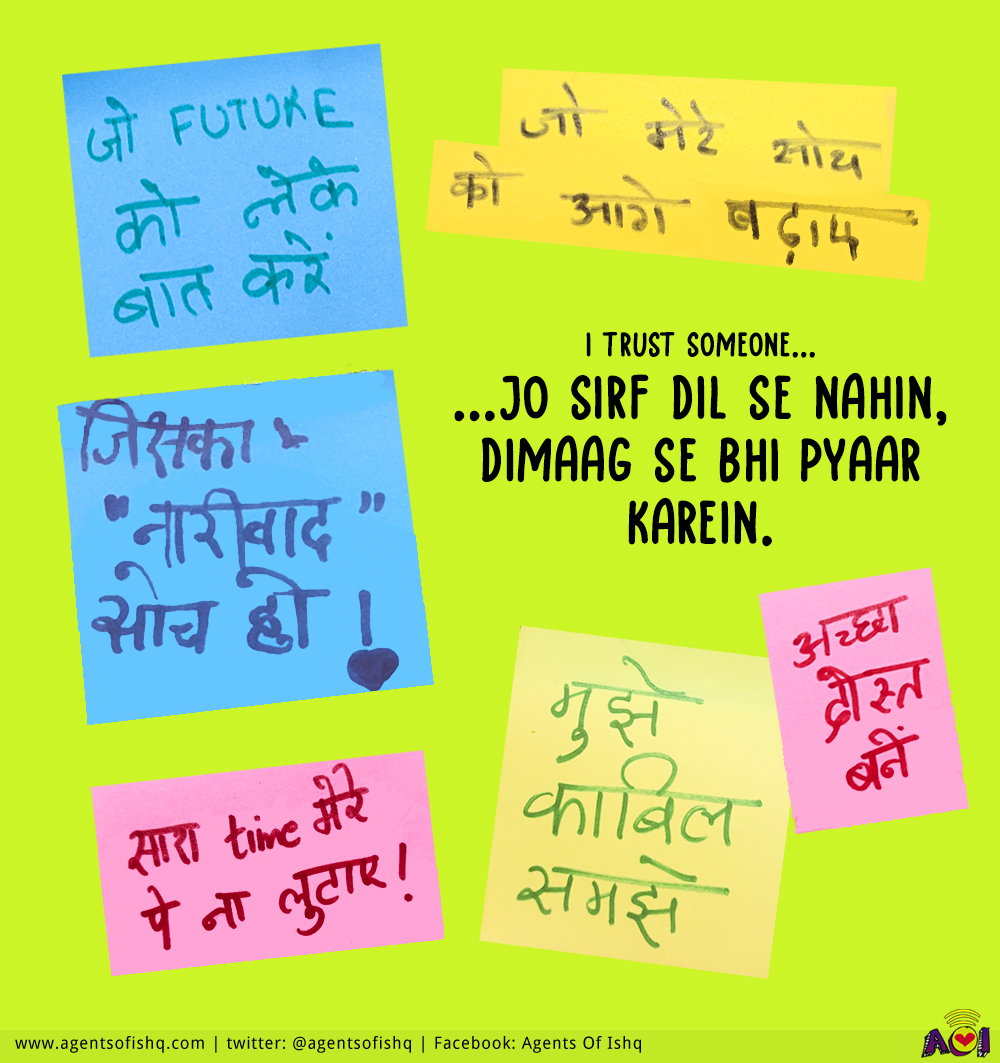 जो FUTURE
को लेके
बात करें
जो मेरे सोच
को आगे बढ़ाए
I TRUST SOMEONE...
...JO SIRF DIL SE NAHIN,
DIMAAG SE BHI PYAAR
KAREIN.
जिसका
"नारीवाद"
सोच हो !
अच्छा
दोस्त
बनें
मुझे
काबिल
समझे
सारा time मेरे
पे ना लुटाए!
www.agentsofishq.com | twitter: @agentsofishq | Facebook: Agents Of Ishq
AOI